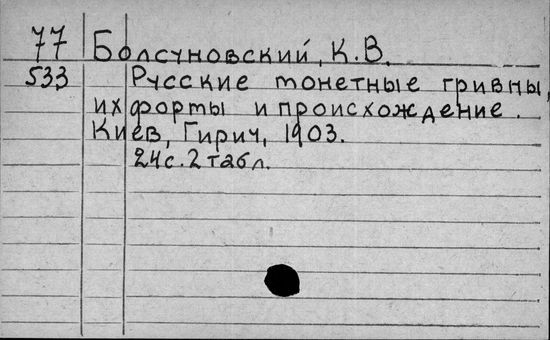 77 Болсуновский, К.В.
533 Русские монетные гривны,
их форты и происхождение.
Киев, Гирич, 1903.
24с. 2 табл.